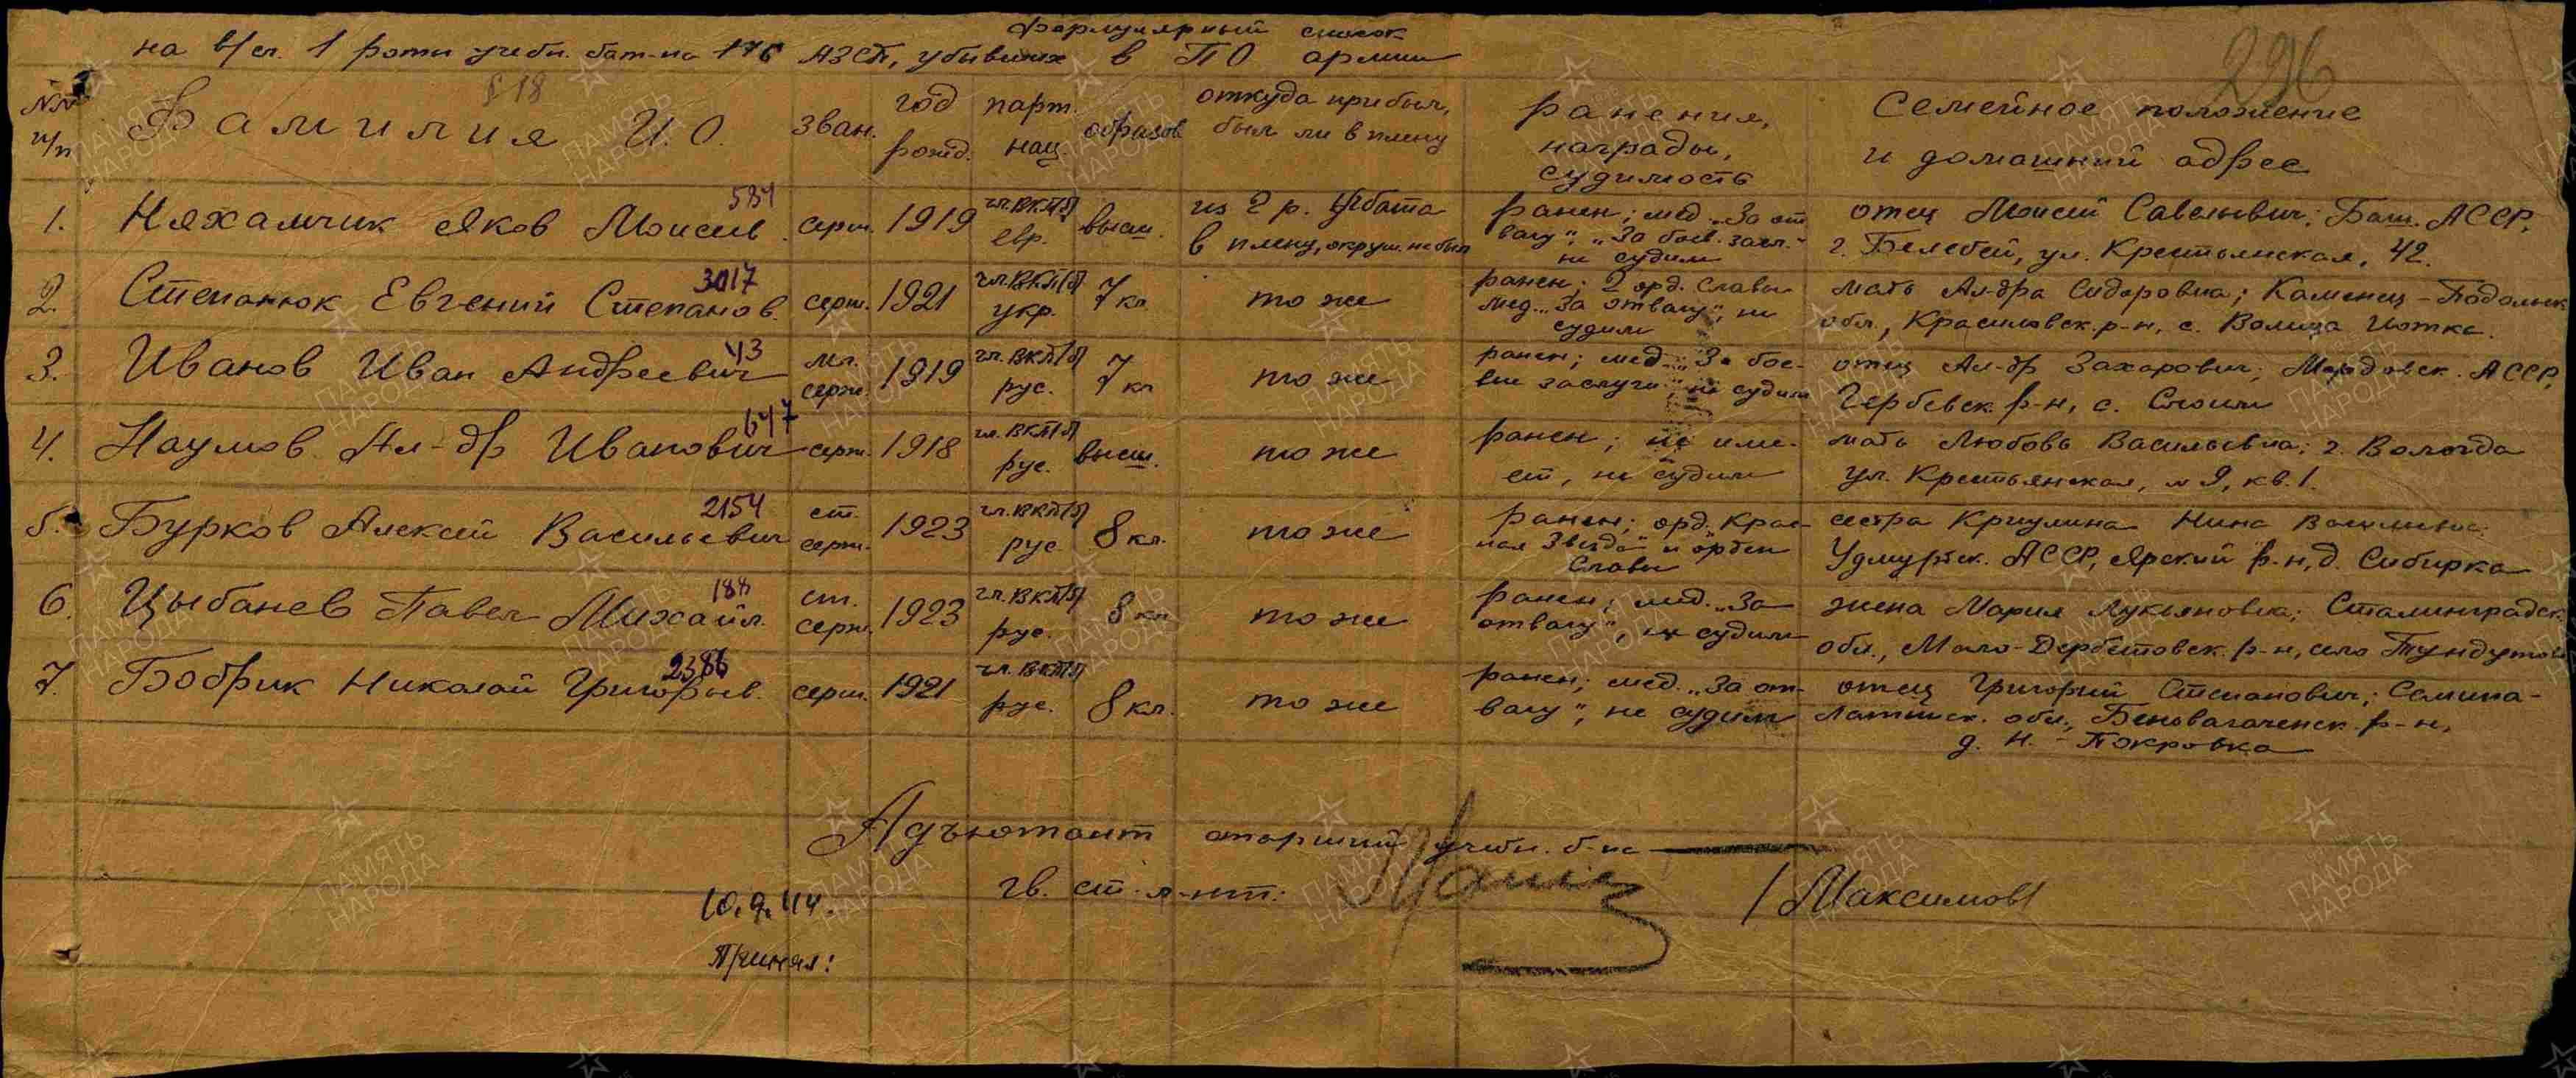 формулярный список
на в/сл. 1 роты учебн. бат-на 176 АЗСП, убывших в ПО армии
296
§ 18
№№ п/п
Фамилия И. О.
зван.
год рожд.
парт. нац.
образов
откуда прибыл, был ли в плену
ранения, награды, судимость
Семейное положение и домашний адрес
1. Няхамчик Яков Моисеев. 584 серж. 1919 чл. ВКП(б) евр. высш. из 2 р. Уч. бата в плену, окруж. не был ранен; мед. „За отвагу“, „За боев. засл.“ не судим отец Моисей Савельевич; Баш. АССР, г. Белебей, ул. Крестьянская, 42.
2. Степанюк Евгений Степанов. 3017 серж. 1921 чл. ВКП(б) укр. 7 кл то же ранен; 2 орд. Славы мед. „За отвагу“, не судим мать Ал-дра Сидоровна; Каменец-Подольск обл., Красиловск. р-н, с. Волица Иотка.
3. Иванов Иван Андреевич 43 мл. серж. 1919 чл. ВКП(б) рус. 7 кл то же ранен; мед. „За боевые заслуги“, не судим отец Ал-др Захарович; Мордовск. АССР,
р-н, с.
4. Наумов Ал-др Иванович 647 серж. 1918 чл. ВКП(б) рус. высш. то же ранен; не имеет, не судим мать Любовь Васильевна; г. Вологда ул. Крестьянская, д 9, кв. 1.
5. Бурков Алексей Васильевич 2154 ст. серж. 1923 чл. ВКП(б) рус. 8 кл. то же ранен; орд. „Красная Звезда“ и орден Славы сестра Криулина Нина Васильевна; Удмуртск. АССР, Ярский р-н, д. Сибирка
6. Цыбанев Павел Михайл. 188 ст. серж. 1923 чл. ВКП(б) рус. 8 кл то же ранен; мед. „За отвагу“, не судим жена Мария Лукьяновна; Сталинградск. обл., Мало-Дербетовск. р-н, село Тундутово
7. Бобрик Николай Григорьев. 2386 серж. 1921 чл. ВКП(б) рус. 8 кл. то же ранен; мед. „За отвагу“, не судим отец Григорий Степанович; Семипалатинск. обл., р-н, д. Н.-Покровка
Адъютант старший учебн. б-на
гв. ст. л-нт: /Максимов/
10.9.44.
Принял:
ПАМЯТЬ НАРОДА